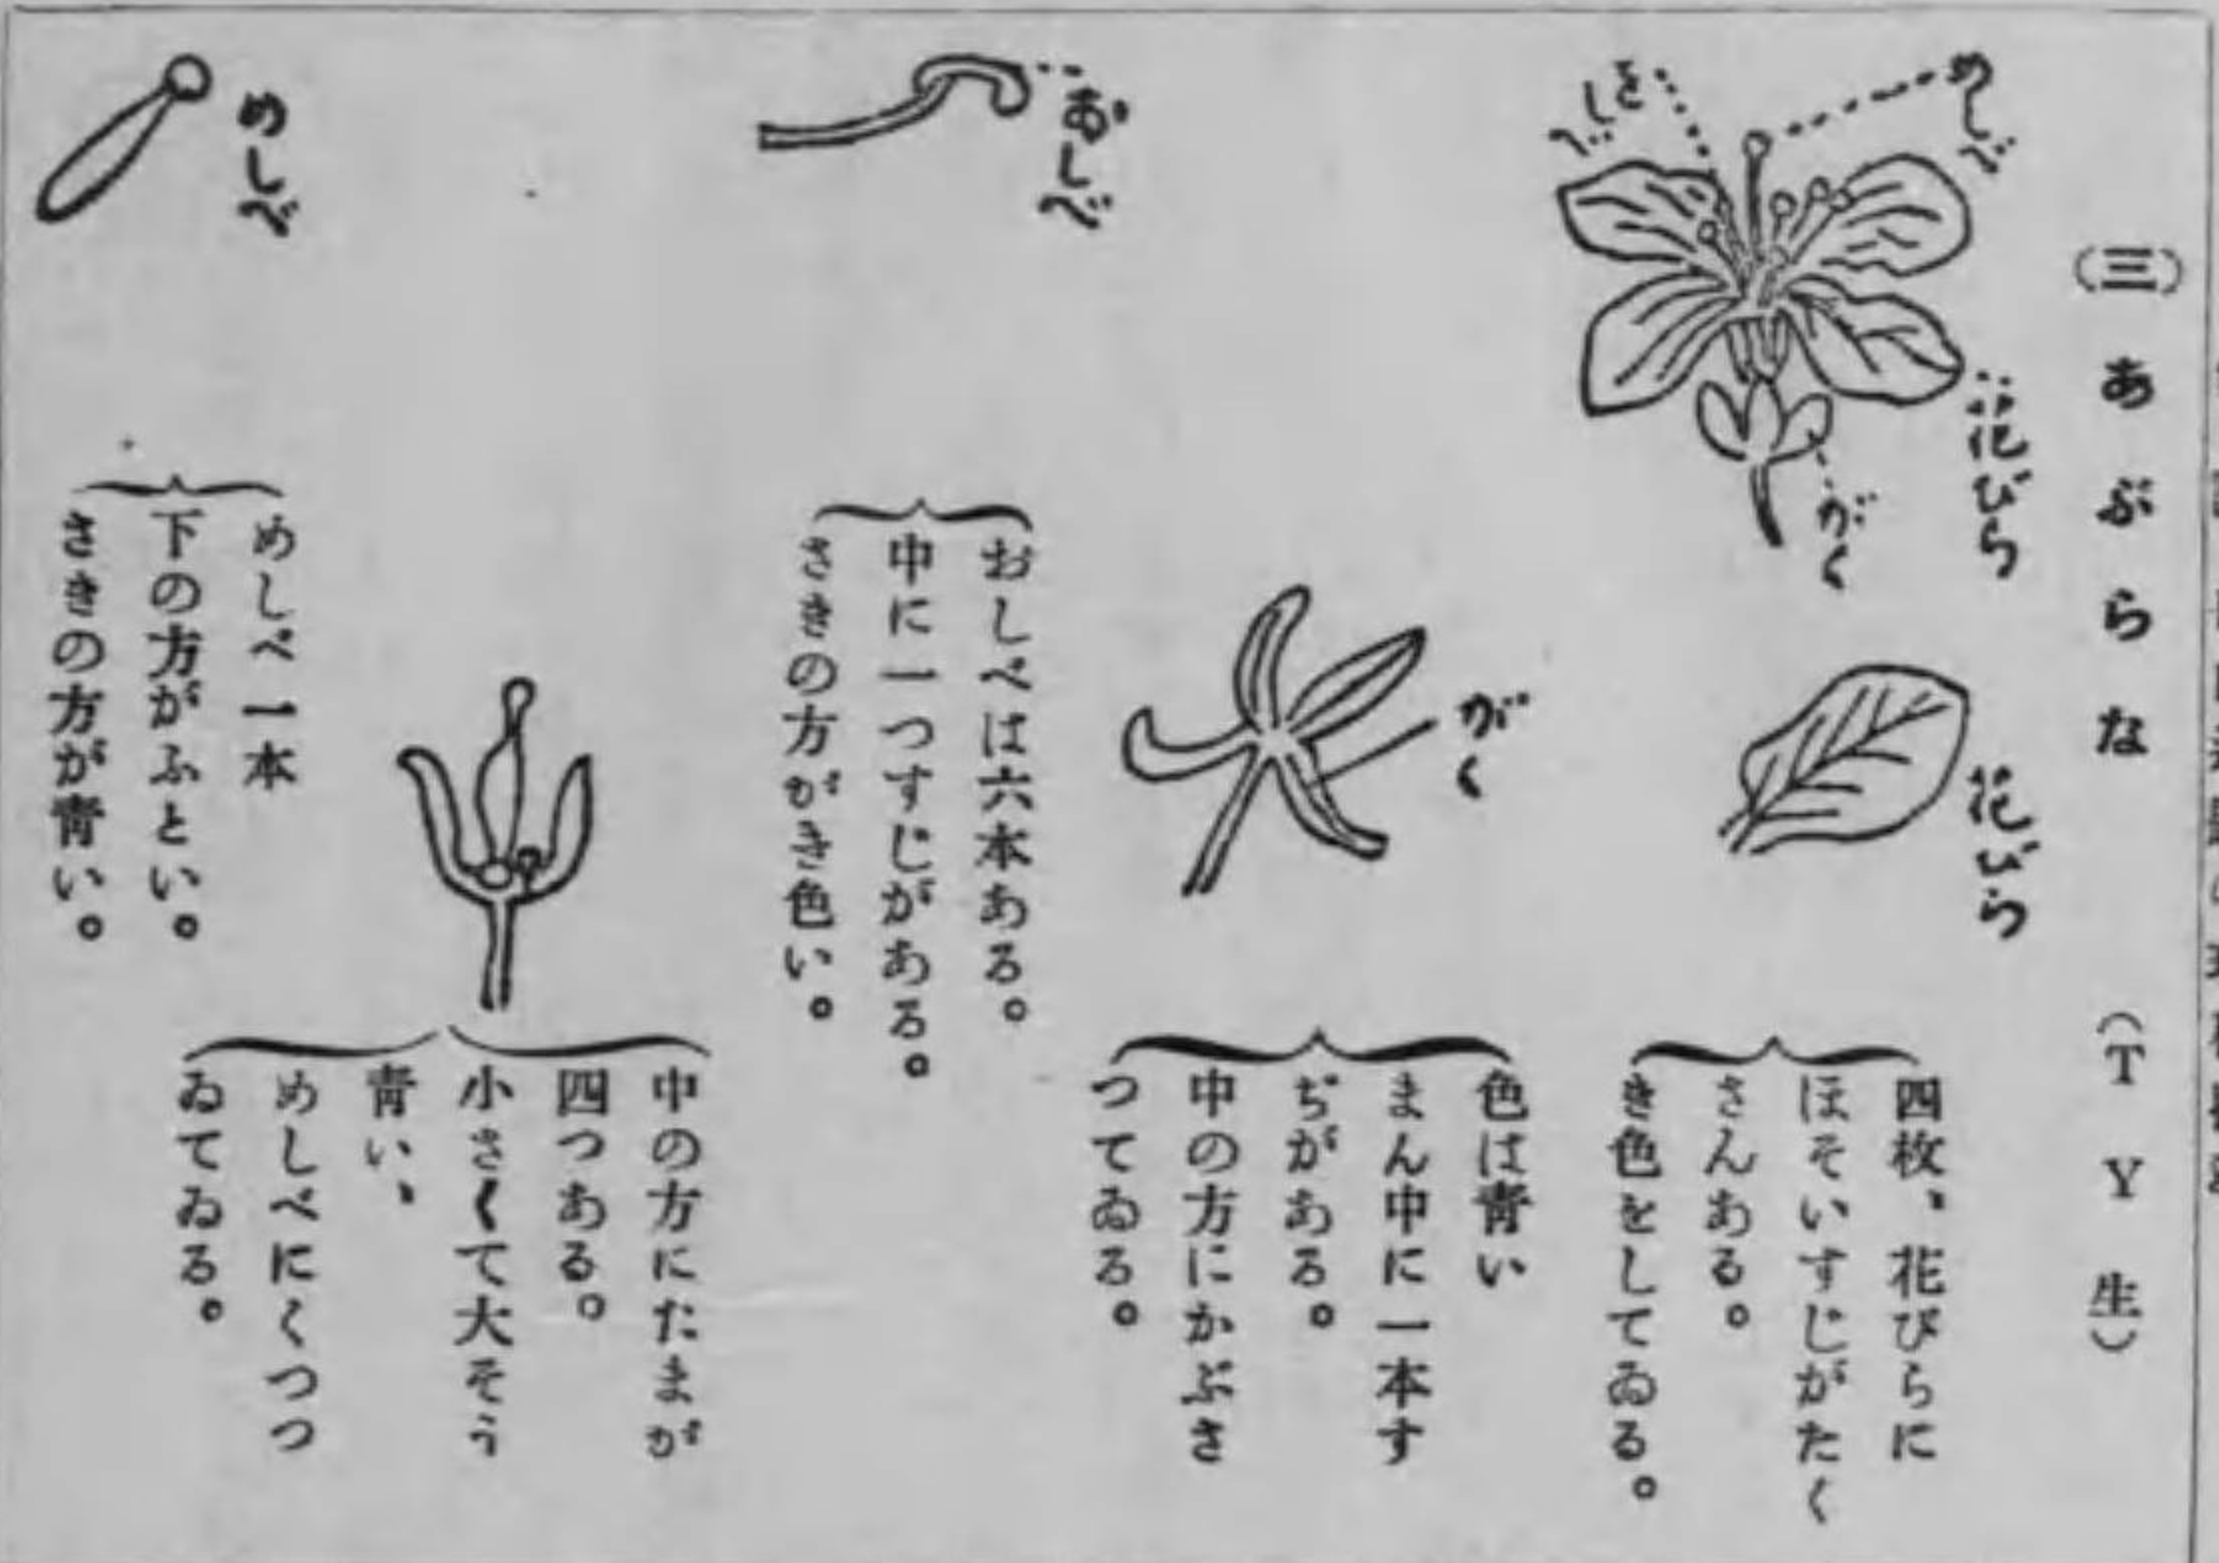 (三) あぶらな (TY生)
めしべ
をしべ
花びら
がく
花びら
四枚、花びらに
ほそいすじがたく
さんある。
き色をしてゐる。
がく
色は青い
まん中に一本す
ぢがある。
中の方にかぶさ
つてゐる。
おしべ
おしべは六本ある。
中に一つすじがある。
さきの方がき色い。
中の方にたまが
四つある。
小さくて大そう
青い、
めしべにくつつ
ゐてゐる。
めしべ
めしべ一本
下の方がふとい。
さきの方が青い。